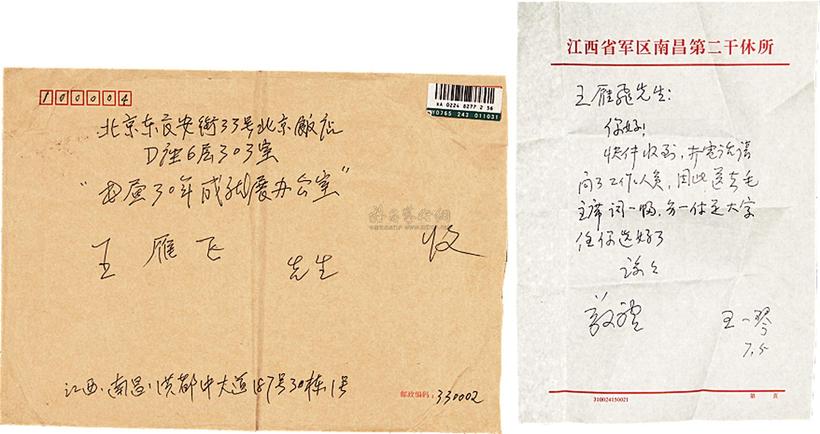 100004
XA 0224 8277 2 56
10765 243 011031
北京东长安街33号北京飯店
D座6层303室
30年成就展办公室"
王雁飞 先生 收
江西·南昌·洪都中大道187号30栋1号
邮政编码:330002
江西省军区南昌第二干休所
王雁飛先生:
你好!
快件收到,并电话询
问了工作人员,因此送去毛
主席词一幅,另一件是大字
任你选好了
谈之
敬禮
王一琴
7.5
310024150021
第 页